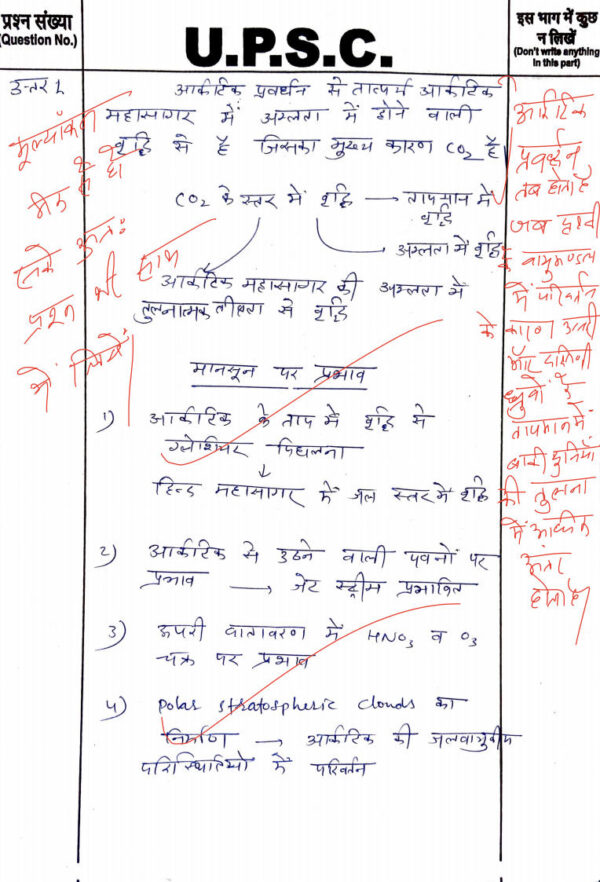 प्रश्न संख्या
(Question No.)
U.P.S.C.
इस भाग में कुछ
न लिखें
(Don't write anything
in this part)
उत्तर 1.
आर्कटिक प्रवर्धन से तात्पर्य आर्कटिक
महासागर में अम्लता में होने वाली
वृद्धि से है जिसका मुख्य कारण CO2 है
CO2 के स्तर में वृद्धि → तापमान में
वृद्धि
अम्लता में वृद्धि
आर्कटिक महासागर की अम्लता में
तुलनात्मक तीव्रता से वृद्धि
मानसून पर प्रभाव
1) आर्कटिक के ताप में वृद्धि से
ग्लेशियर पिघलना
↓
हिन्द महासागर में जल स्तर में वृद्धि
2) आर्कटिक से उठने वाली पवनों पर
प्रभाव → जेट स्ट्रीम प्रभावित
3) ऊपरी वातावरण में HNO3 व O3
चक्र पर प्रभाव
4) Polar stratospheric clouds का
निर्माण → आर्कटिक की जलवायुवीय
परिस्थितियों में परिवर्तन
मूल्यांकन
अतः
प्रश्न भी साथ
में लिखें
आर्कटिक
प्रवर्धन
तब होता है
जब पृथ्वी
के वायुमण्डल
में परिवर्तन
के कारण उत्तरी
और दक्षिणी
ध्रुवों के
तापमान में
बाकी दुनिया
की तुलना
में अधिक
अंतर
होता है